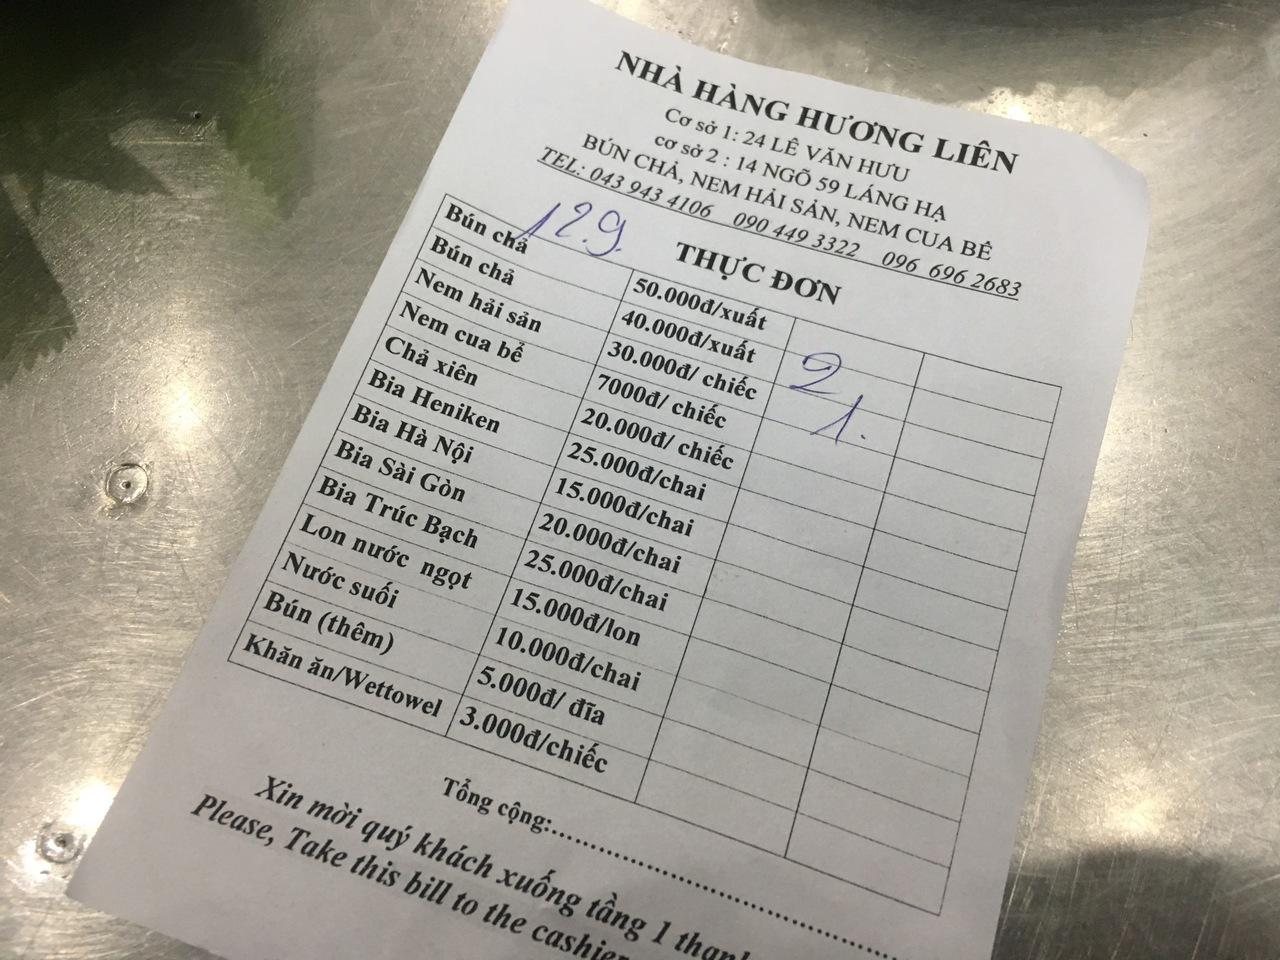 NHÀ HÀNG HƯƠNG LIÊN
Cơ sở 1: 24 LÊ VĂN HƯU
cơ sở 2 : 14 NGÕ 59 LÁNG HẠ
BÚN CHẢ, NEM HẢI SẢN, NEM CUA BỂ
TEL: 043 943 4106 090 449 3322 096 696 2683
129.
THỰC ĐƠN
Bún chả 50.000đ/xuất
Bún chả 40.000đ/xuất 2
Nem hải sản 30.000đ/ chiếc 1.
Nem cua bể 7000đ/ chiếc
Chả xiên 20.000đ/ chiếc
Bia Heniken 25.000đ/chai
Bia Hà Nội 15.000đ/chai
Bia Sài Gòn 20.000đ/chai
Bia Trúc Bạch 25.000đ/chai
Lon nước ngọt 15.000đ/lon
Nước suối 10.000đ/chai
Bún (thêm) 5.000đ/ đĩa
Khăn ăn/Wettowel 3.000đ/chiếc
Tổng cộng:........................................
Xin mời quý khách xuống tầng 1
Please, Take this bill to the